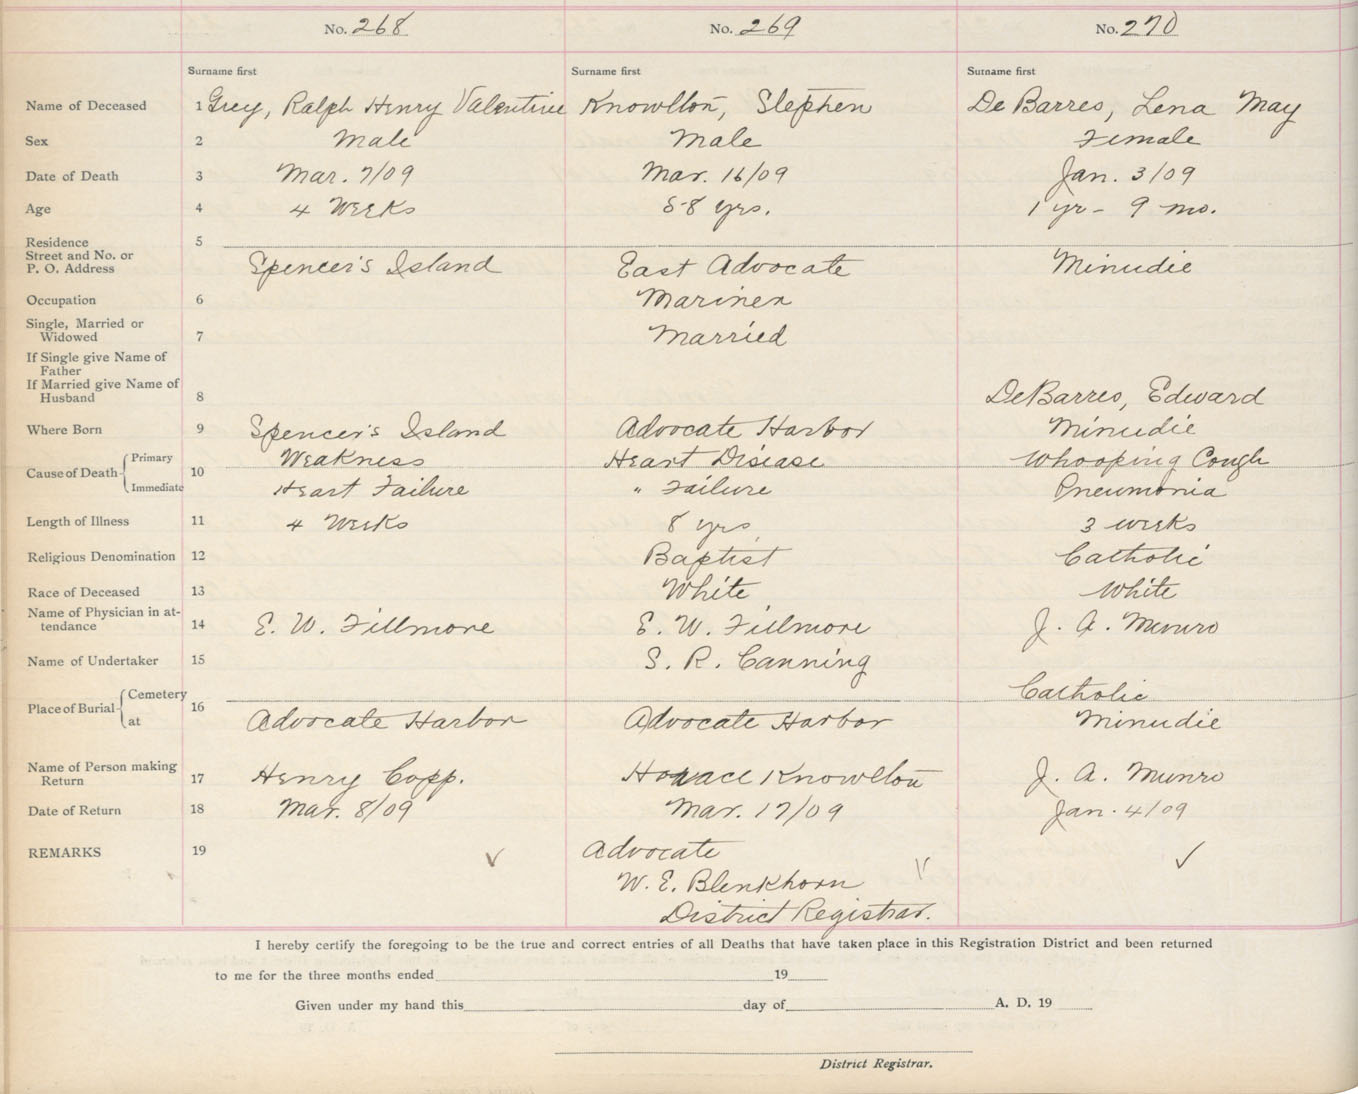 No. 268 No. 269 No. 270
Surname first Surname first Surname first
Name of Deceased 1 Grey, Ralph Henry Valentine Knowlton, Stephen De Barres, Lena May
Sex 2 Male Male Female
Date of Death 3 Mar. 7/09 Mar. 16/09 Jan. 3/09
Age 4 4 Weeks 58 yrs. 1 yr - 9 mo.
Residence 5
Street and No. or
P. O. Address Spencer's Island East Advocate Minudie
Occupation 6 Mariner
Single, Married or
Widowed 7 Married
If Single give Name of
Father
If Married give Name of
Husband 8 DeBarres, Edward
Where Born 9 Spencer's Island Advocate Harbor Minudie
Cause of Death Primary 10 Weakness Heart Disease Whooping Cough
Immediate Heart Failure " Failure Pneumonia
Length of Illness 11 4 Weeks 8 yrs 3 weeks
Religious Denomination 12 Baptist Catholic
Race of Deceased 13 White White
Name of Physician in at-
tendance 14 E. W. Fillmore E. W. Fillmore J. A. Munro
Name of Undertaker 15 S. R. Canning
Place of Burial Cemetery 16 Catholic
at Advocate Harbor Advocate Harbor Minudie
Name of Person making
Return 17 Henry Copp. Horace Knowlton J. A. Munro
Date of Return 18 Mar. 8/09 Mar. 17/09 Jan. 4/09
REMARKS 19 ✓ Advocate ✓
W. E. Blenkhorn ✓
District Registrar.
I hereby certify the foregoing to be the true and correct entries of all Deaths that have taken place in this Registration District and been returned
to me for the three months ended 19
Given under my hand this day of A. D. 19
District Registrar.